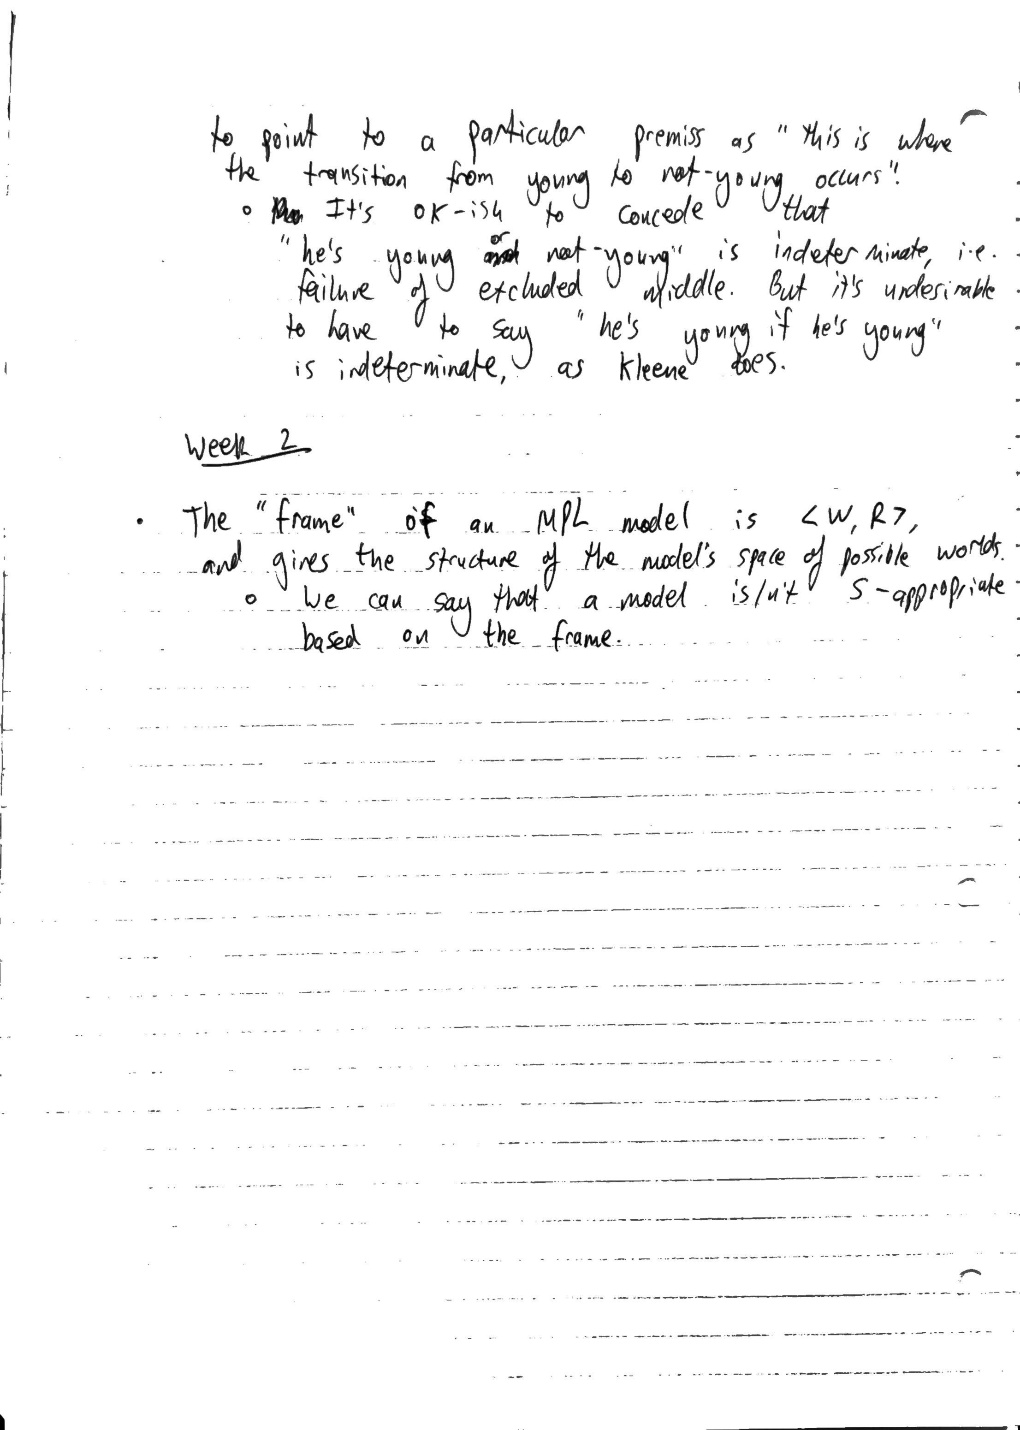 to point to a particular premiss as "this is where
the transition from young to not-young occurs"!
◦ It's OK-ish to concede that
"he's young or not-young" is indeterminate, i.e.
failure of excluded middle. But it's undesirable
to have to say "he's young if he's young"
is indeterminate, as Kleene does.
Week 2
• The "frame" of an MPL model is <W, R>,
and gives the structure of the model's space of possible worlds.
◦ We can say that a model is/n't S-appropriate
based on the frame.